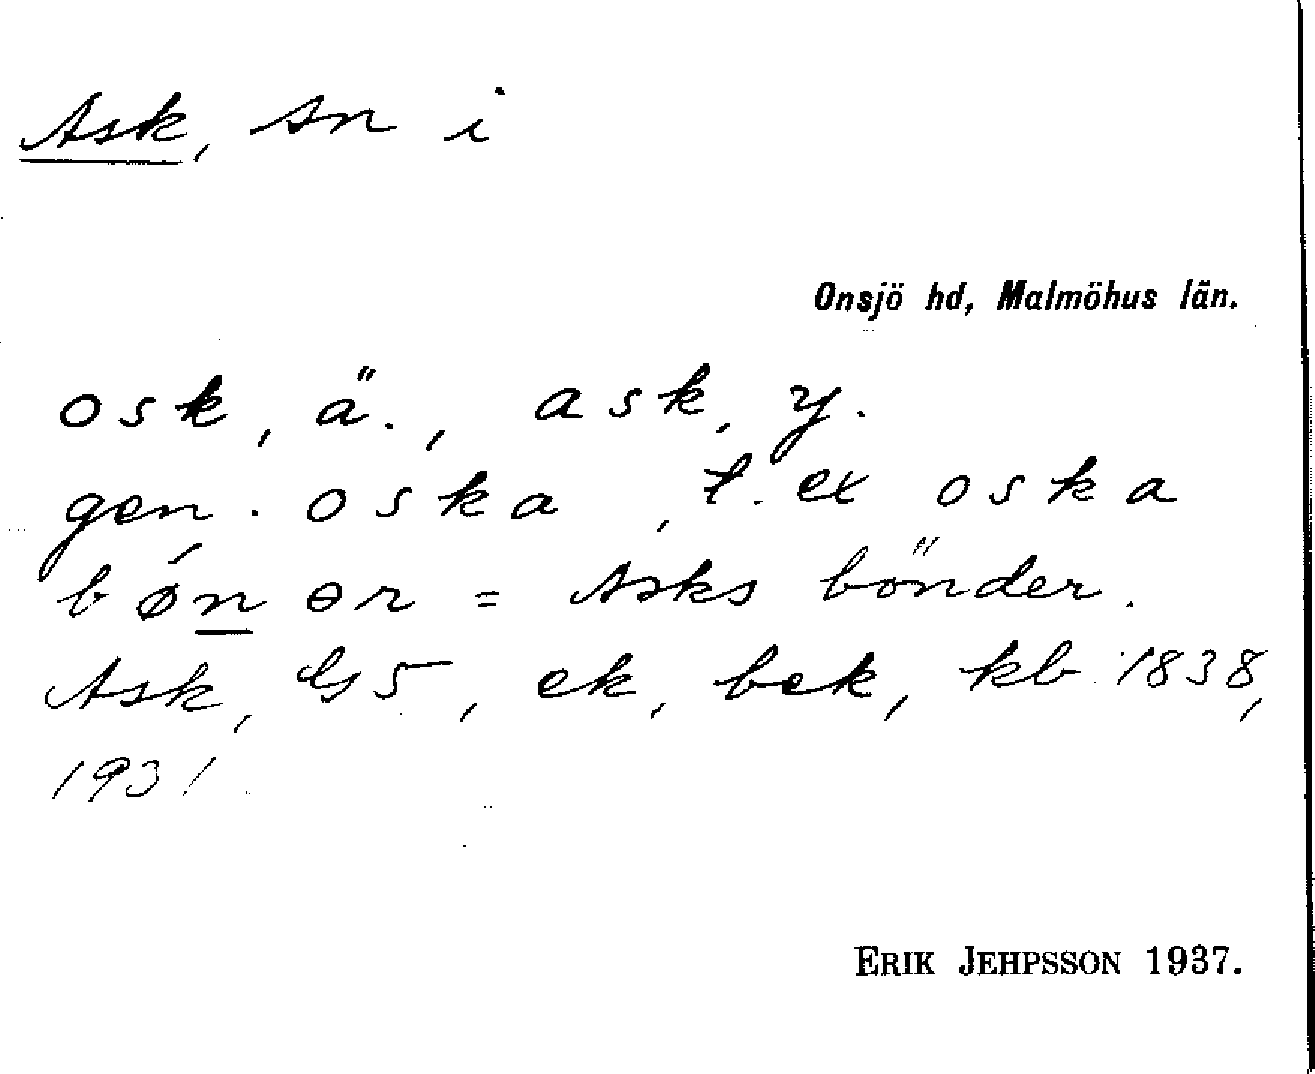 Ask, sn i
Onsjö hd, Malmöhus län.
osk, ä., ask, y.
gen. oska, t. ex oska
bǿnər = Asks bönder.
Ask, G5, ek, bek, kb 1838,
1931.
ERIK JEHPSSON 1937.